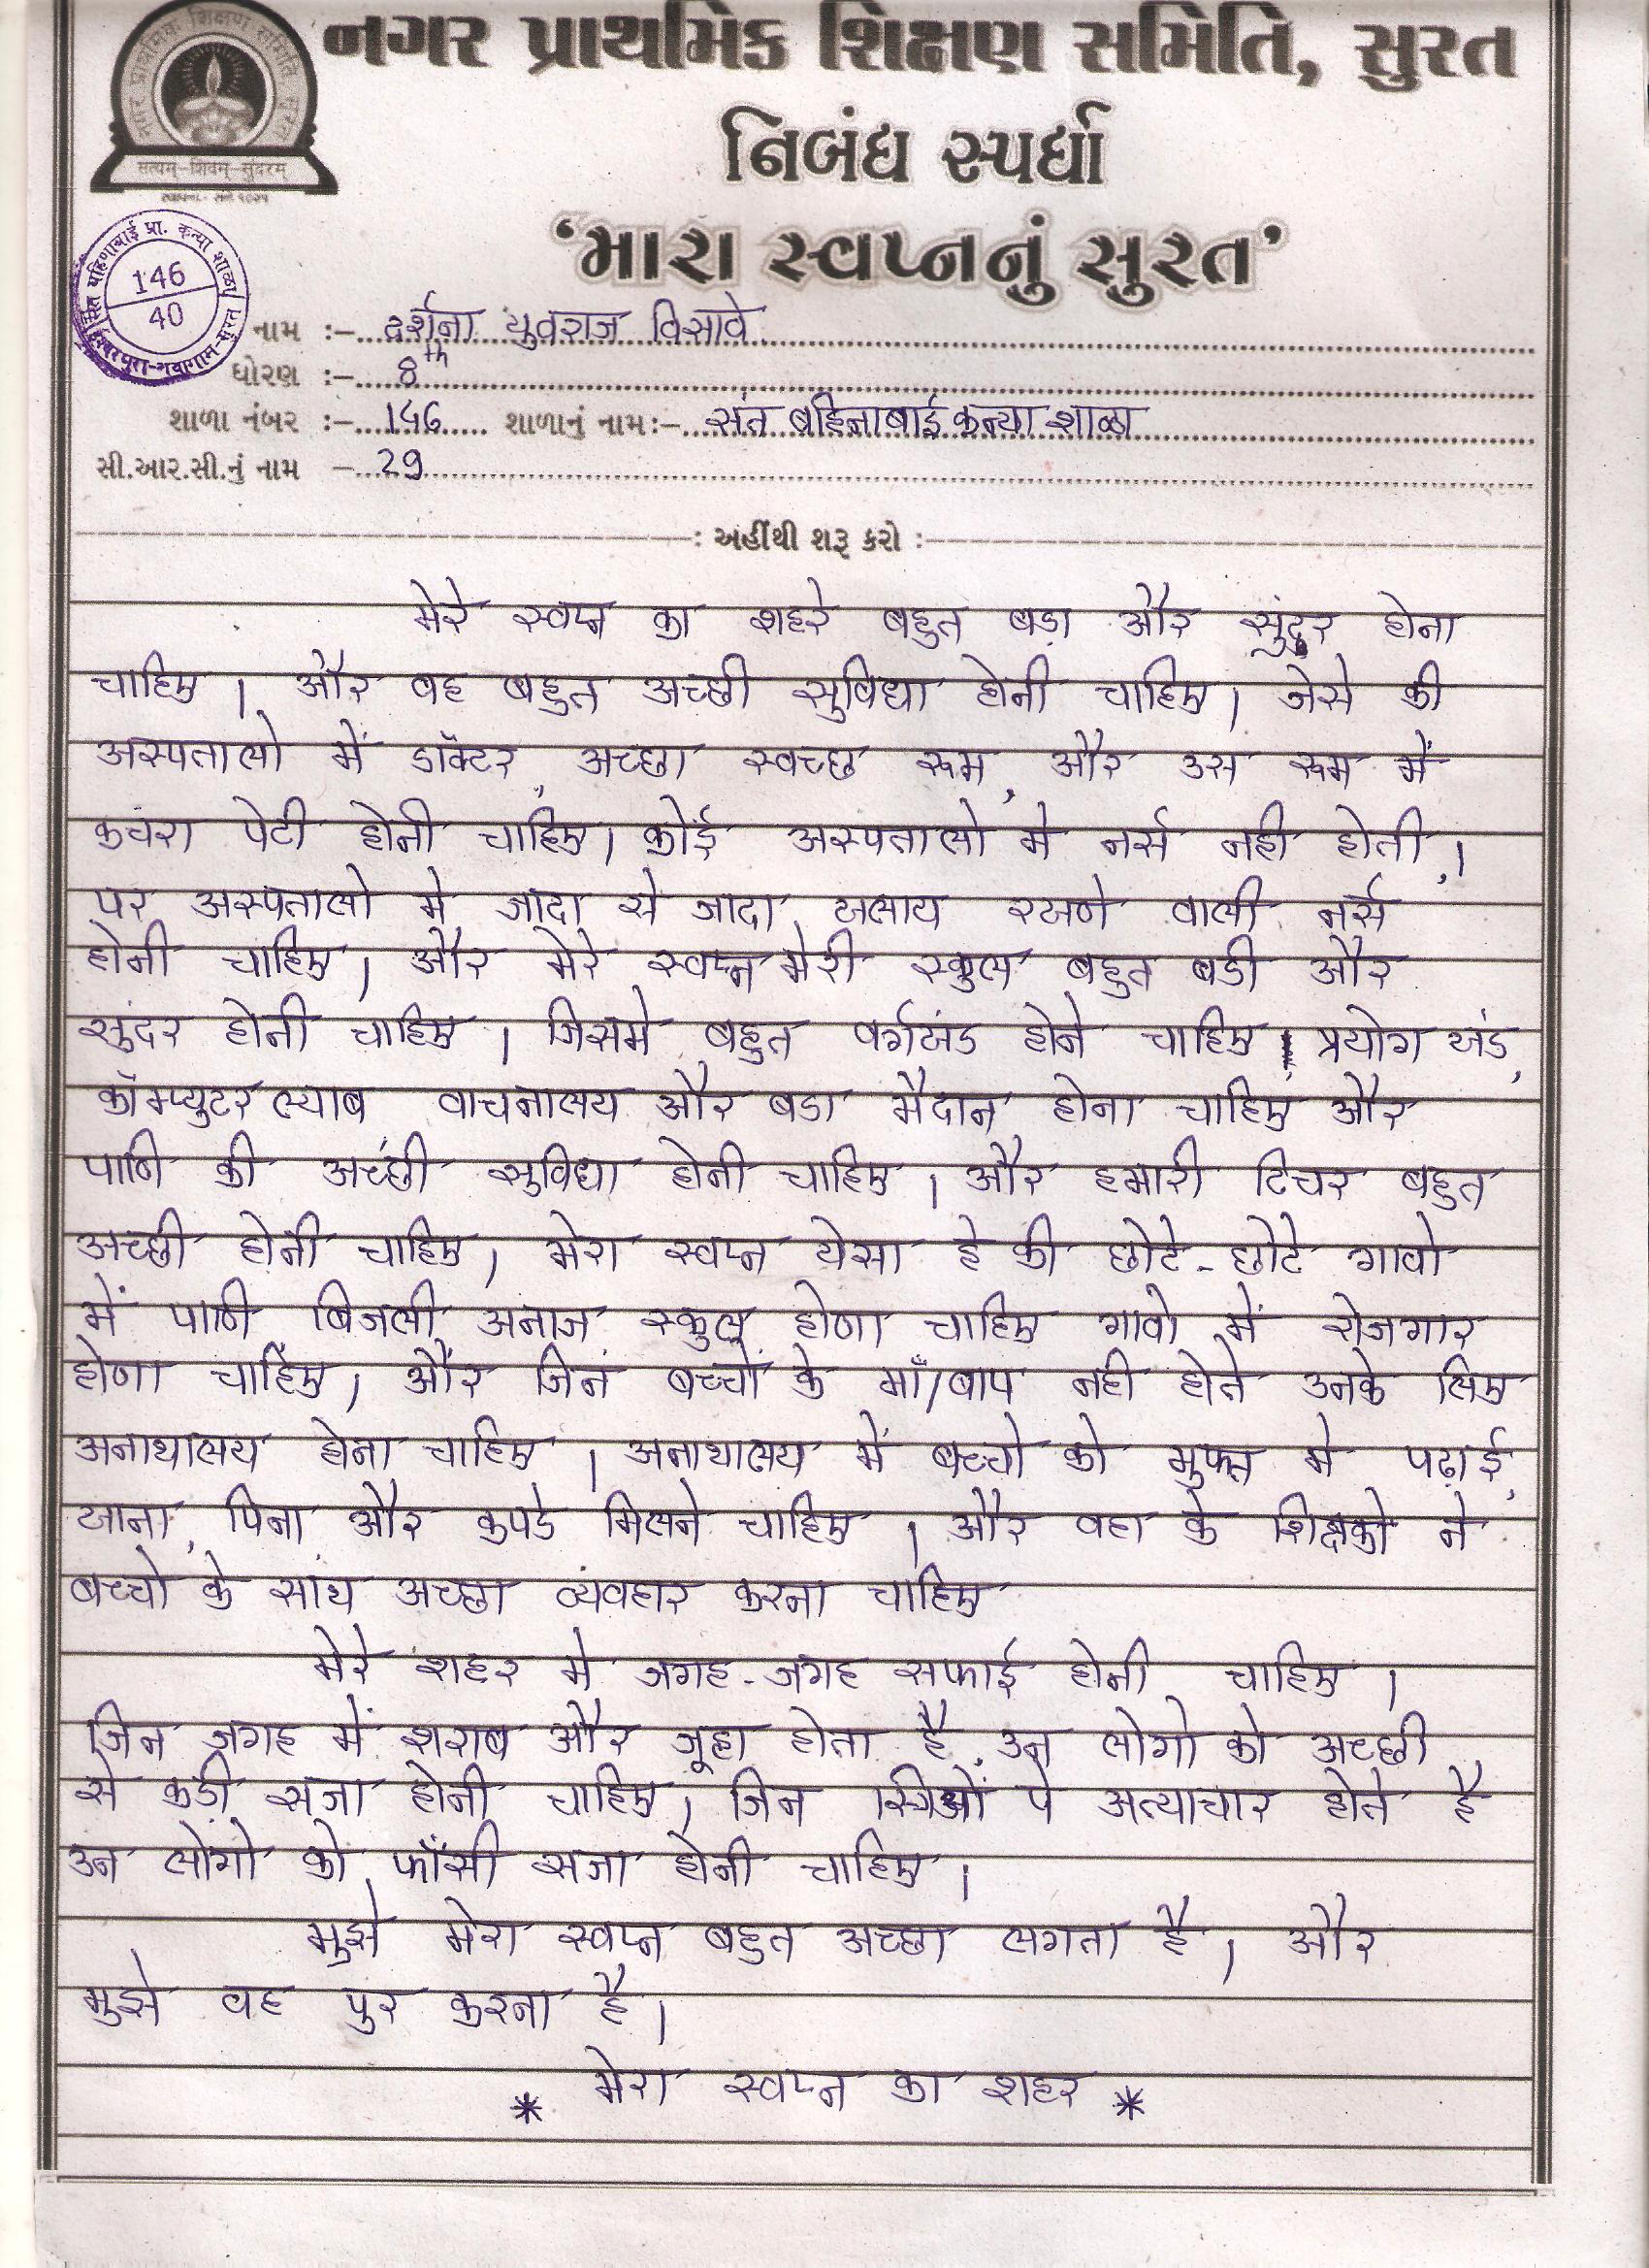 નગર પ્રાથમિક શિક્ષણ સમિતિ, સુરત
નિબંધ સ્પર્ધા
'મારા સ્વપ્નનું સુરત'
સત્યમ્-શિવમ્-સુંદરમ્
146
40
નામ :- दर्शना युवराज विसावे
ધોરણ :- 8th
શાળા નંબર :- 146 શાળાનું નામ:- संत बहिनाबाई कन्या शाळा
સી.આર.સી.નું નામ - 29
: અહીંથી શરૂ કરો :
मेरे स्वप्न का शहरे बहुत बड़ा और सुंदर होना
चाहिए । और वह बहुत अच्छी सुविधा होनी चाहिए। जेसे की
अस्पतालो में डॉक्टर, अच्छा स्वच्छ रूम, और उस रूम में
कचरा पेटी होनी चाहिए। कोई अस्पतालो मे नर्स नही होती,।
पर अस्पतालो मे जादा से जादा खलाय रखणे वाली नर्स
होनी चाहिए। और मेरे स्वप्न मेरी स्कुल बहुत बडी और
सुंदर होनी चाहिए । जिसमे बहुत वर्गखंड होने चाहिए। प्रयोग खंड,
कॉम्प्युटर ल्याब वाचनालय और बडा मैदान होना चाहिए और
पाणि की अच्छी सुविधा होनी चाहिए । और हमारी टिचर बहुत
अच्छी होनी चाहिए। मेरा स्वप्न येसा हे की छोटे-छोटे गावो
में पाणी बिजली अनाज स्कुल होणा चाहिए गावो में रोजगार
होणा चाहिए। और जिन बच्चों के माँ/बाप नही होते उनके लिए
अनाथालय होना चाहिए । अनाथालय में बच्चो को मुफ्त मे पढ़ाई,
खाना, पिना और कपडे मिलने चाहिए । और वहा के शिक्षको ने
बच्चो के साथ अच्छा व्यवहार करना चाहिए
मेरे शहर मे जगह-जगह सफाई होनी चाहिए ।
जिन जगह में शराब और जूहा होता है, उन लोगो को अच्छी
से कड़ी सजा होनी चाहिए। जिन स्त्रिओं पे अत्याचार होते है
उन लोगो को फाँसी सजा होनी चाहिए ।
मुझे मेरा स्वप्न बहुत अच्छा लगता है। और
मुझे वह पुर करना है।
* मेरा स्वप्न का शहर *